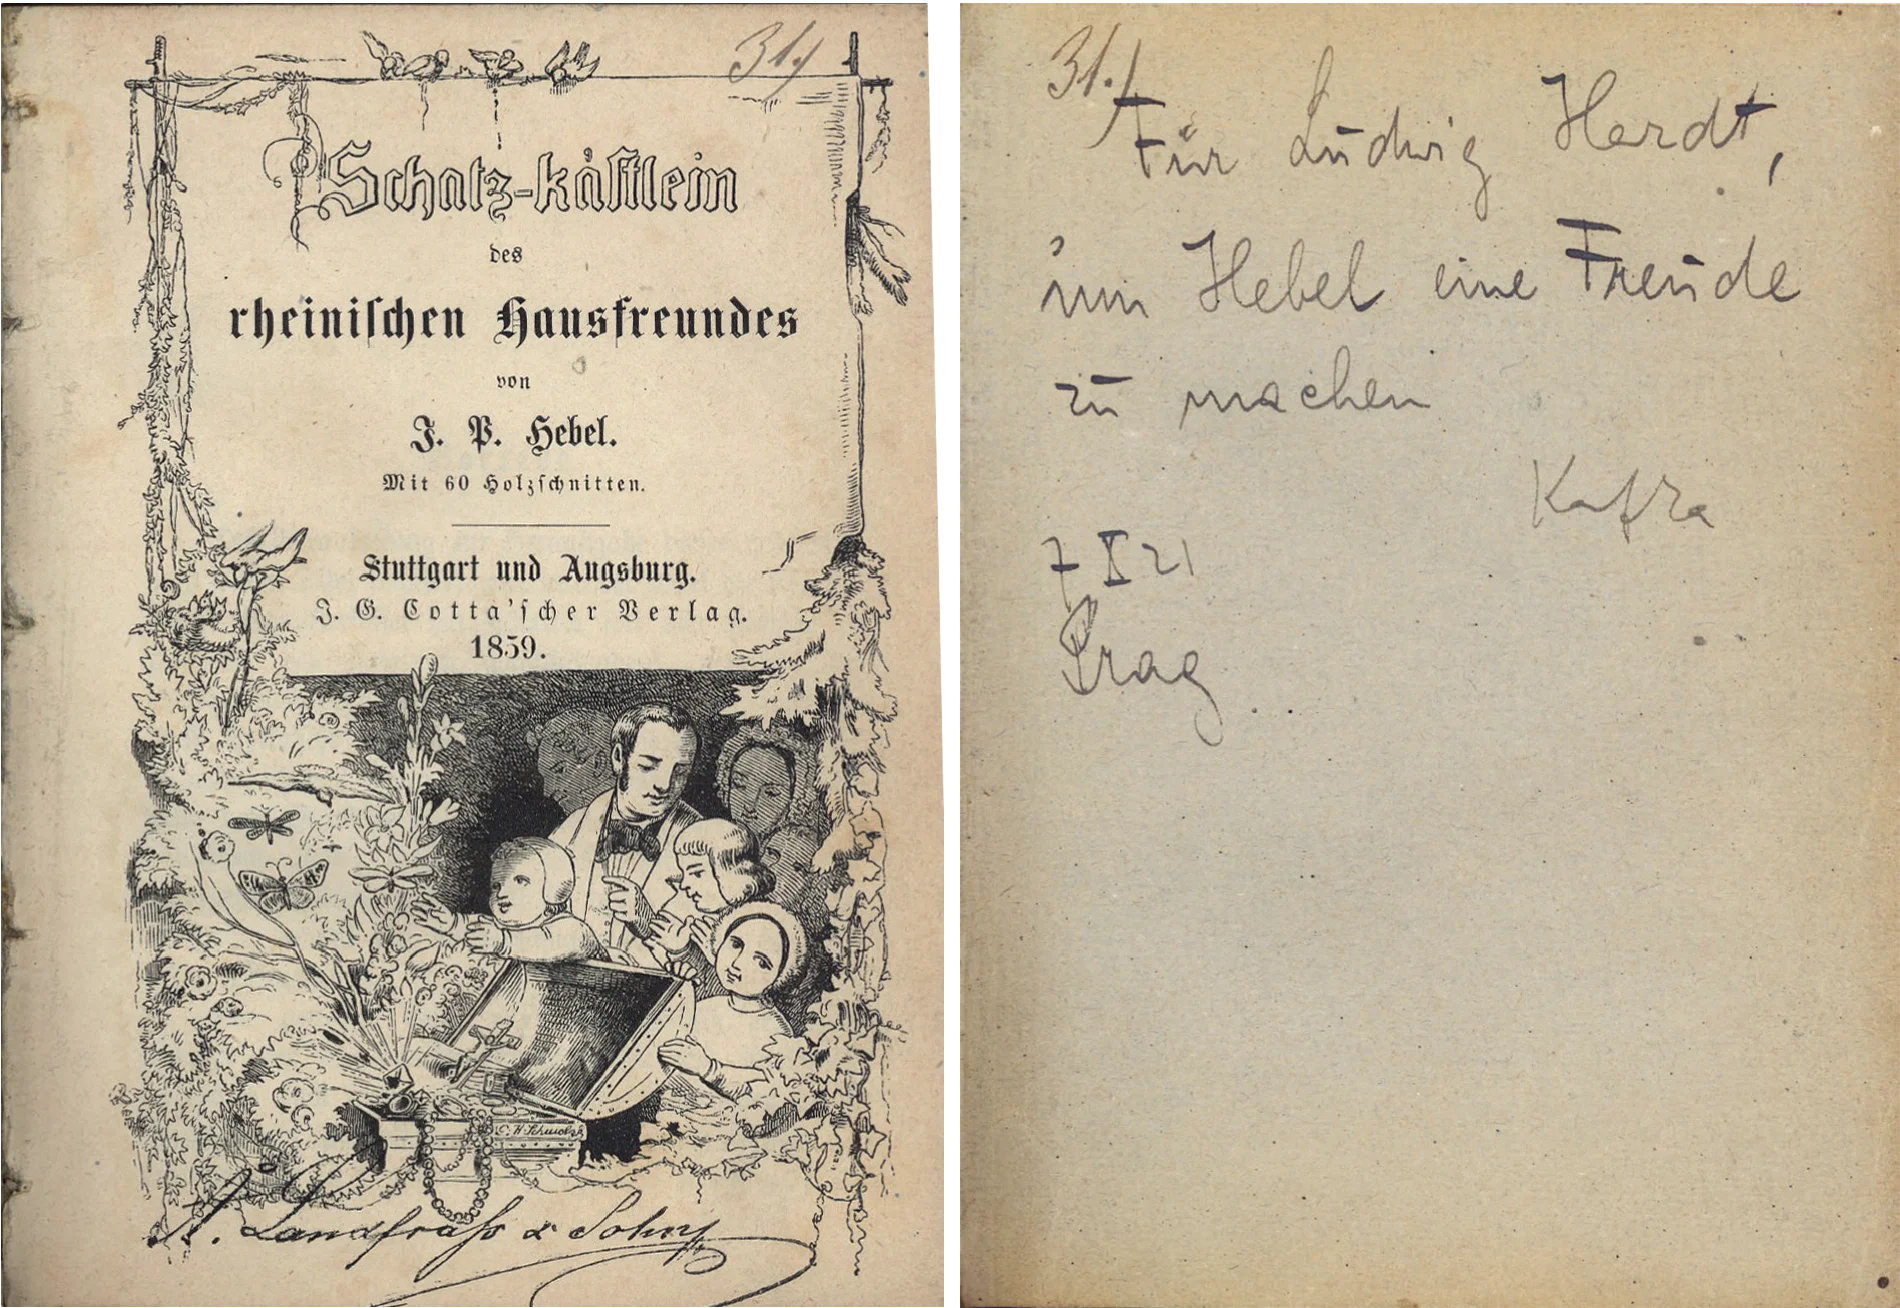 31.)
Schatz-kästlein
des
rheinischen Hausfreundes
von
J. P. Hebel.
Mit 60 Holzschnitten.
Stuttgart und Augsburg.
J. G. Cotta'scher Verlag.
1859.
A. Landfraß & Sohn
31.)
Für Ludwig Hardt,
um Hebel eine Freude
zu machen
Kafka
7 X 21
Prag